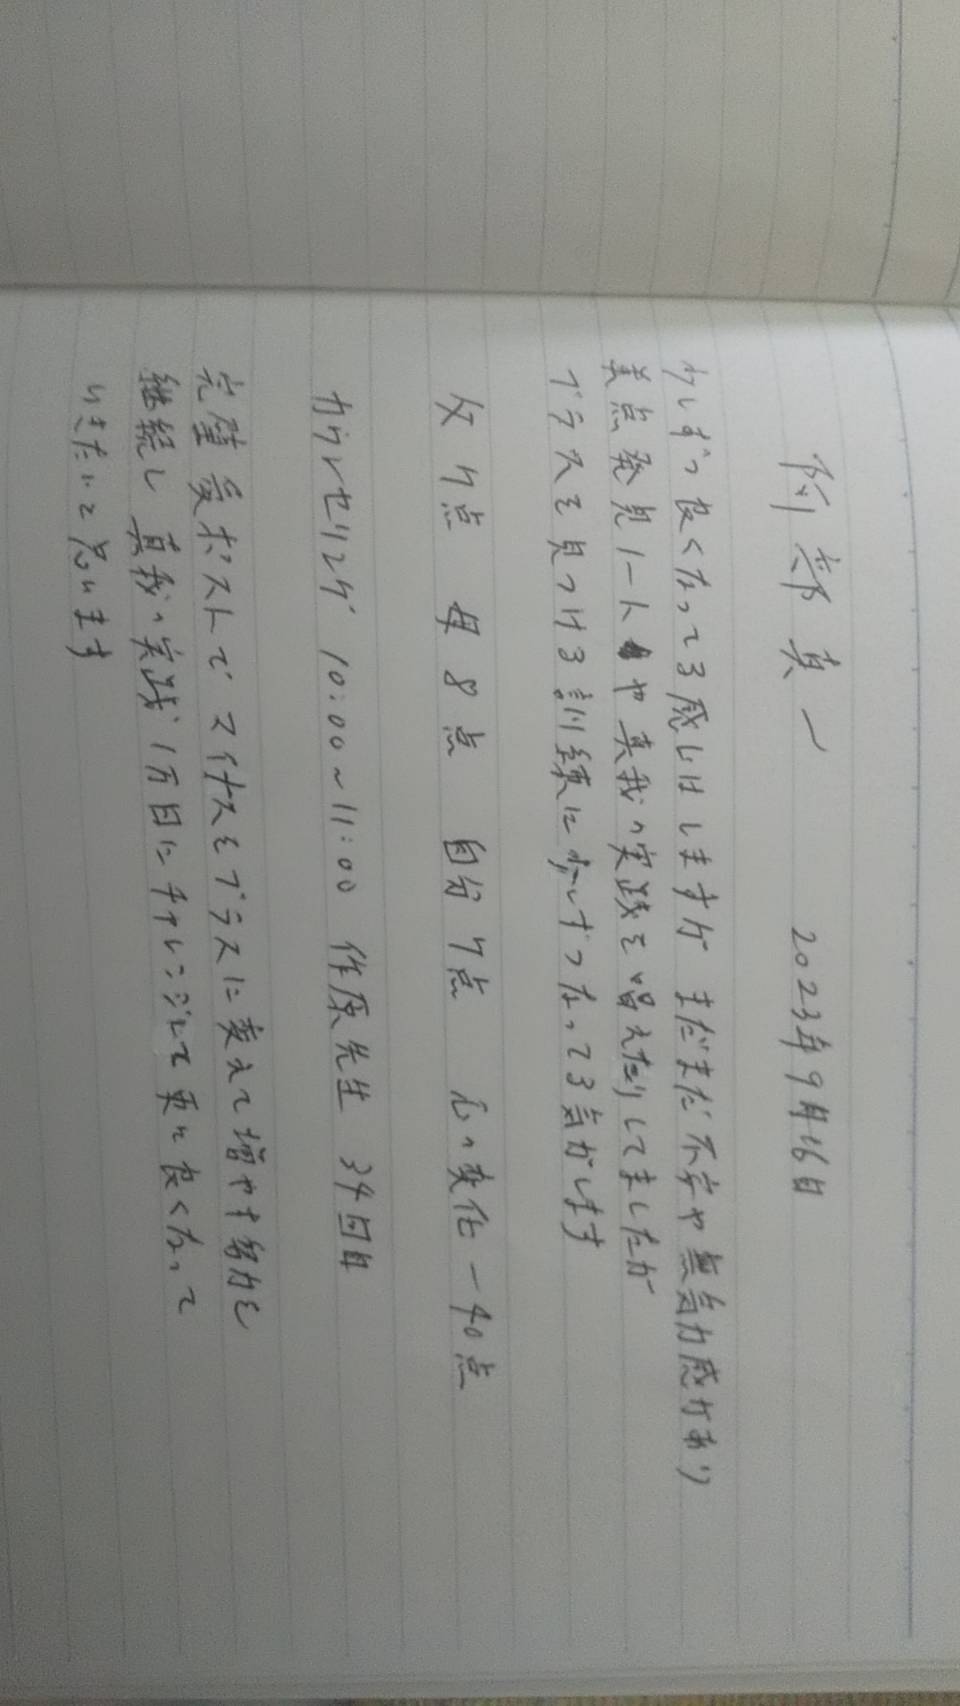 阿部真一 2023年9月16日
少しずつ良くなってる感じはしますが まだまだ不安や無気力感があり
美点発見ノートや真我の実践を唱えたりしてましたが
プラスを見つける訓練に少しずつなってる気がします
父7点 母8点 自分7点 心の変化-40点
カウンセリング 10:00~11:00 作原先生 34回目
完璧 愛ポストで マイナスをプラスに変えて増やす努力を
継続し 真我の実践 1万日にチャレンジして更に良くなって
いきたいと思います